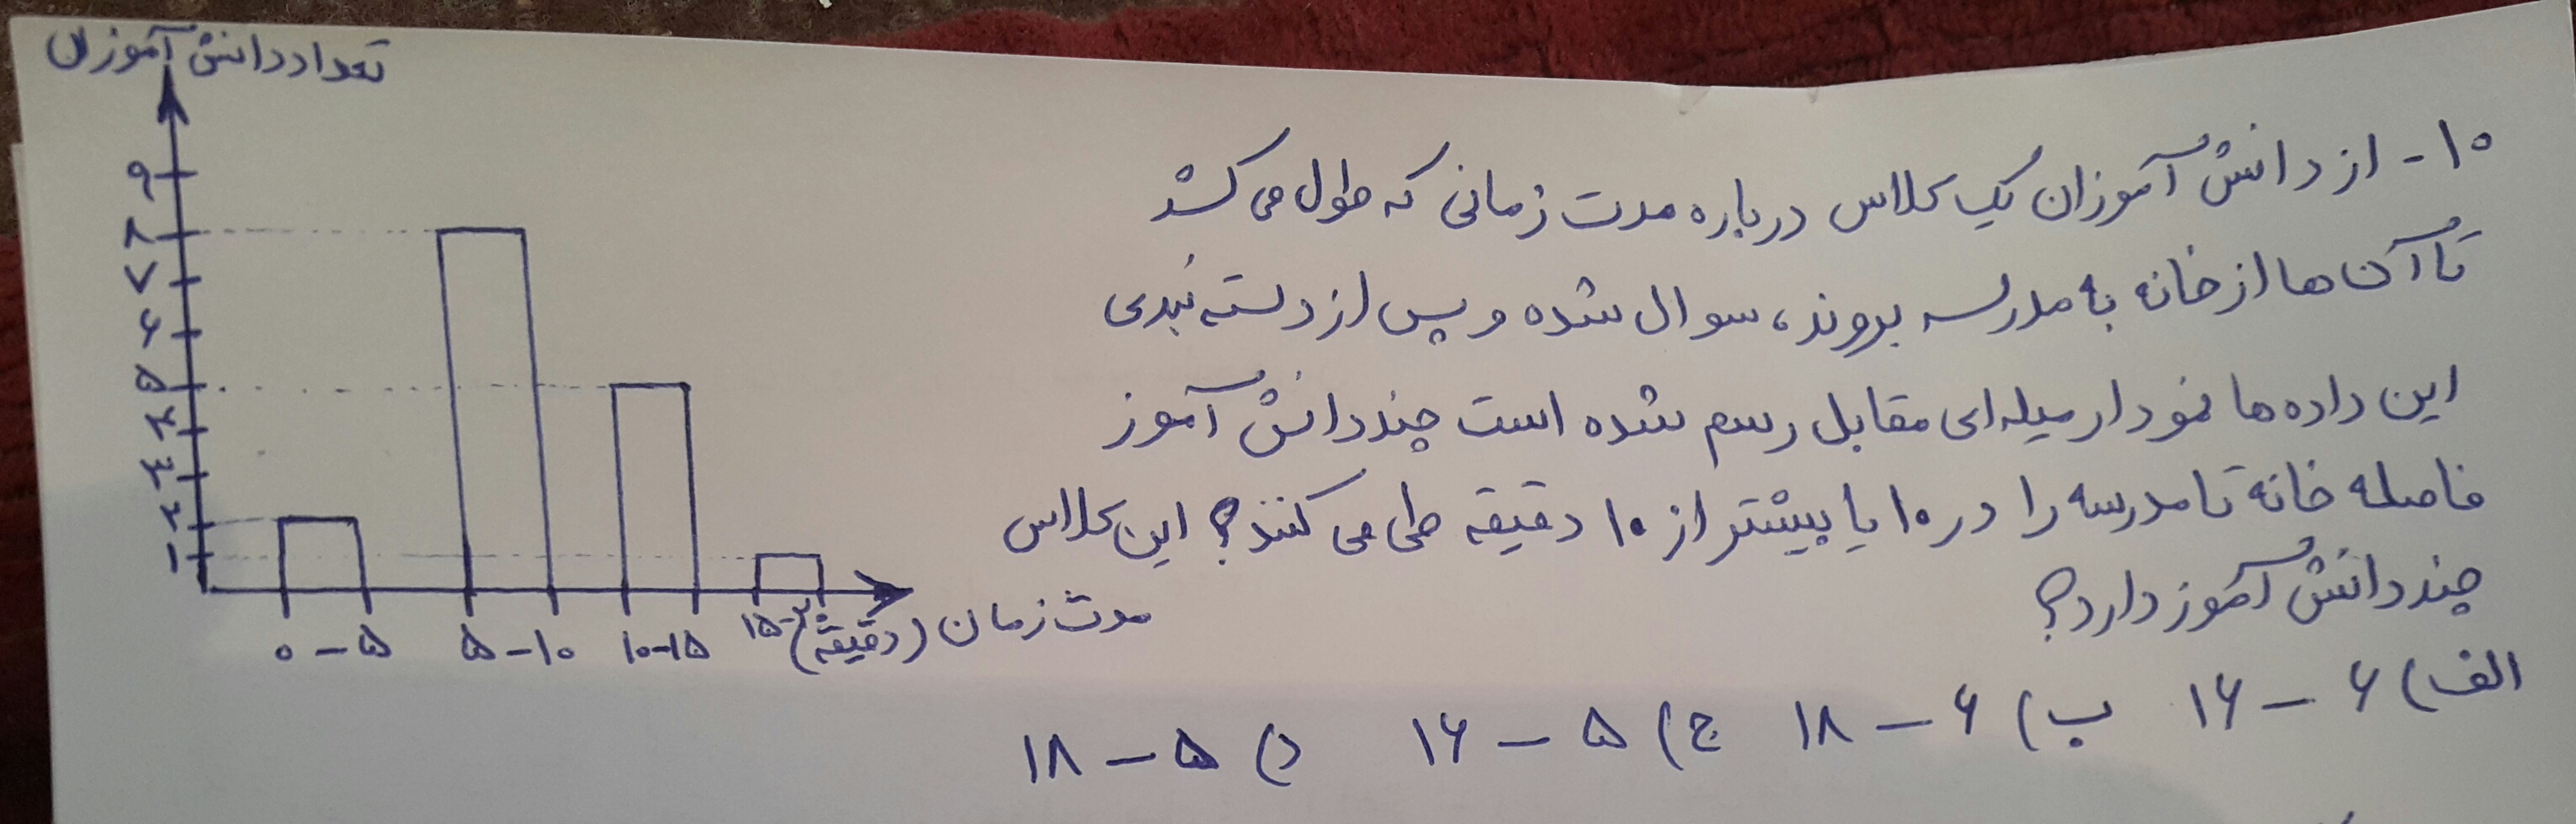 تعداد دانش آموزان
۹
۸
۷
۶
۵
۴
۳
۲
۱
۰ - ۵
۵ - ۱۰
۱۰-۱۵
۱۵-۲۰
مدت زمان (دقیقه)
۱۰- از دانش آموزان یک کلاس درباره مدت زمانی که طول می کشد
تا آن ها از خانه به مدرسه بروند، سوال شده و پس از دسته بندی
این داده ها نمودار میله ای مقابل رسم شده است چند دانش آموز
فاصله خانه تا مدرسه را در ۱۰ یا بیشتر از ۱۰ دقیقه طی می کنند؟ این کلاس
چند دانش آموز دارد؟
الف) ۶ - ۱۶ ب) ۶ - ۱۸ ج) ۵ - ۱۶ د) ۵ - ۱۸